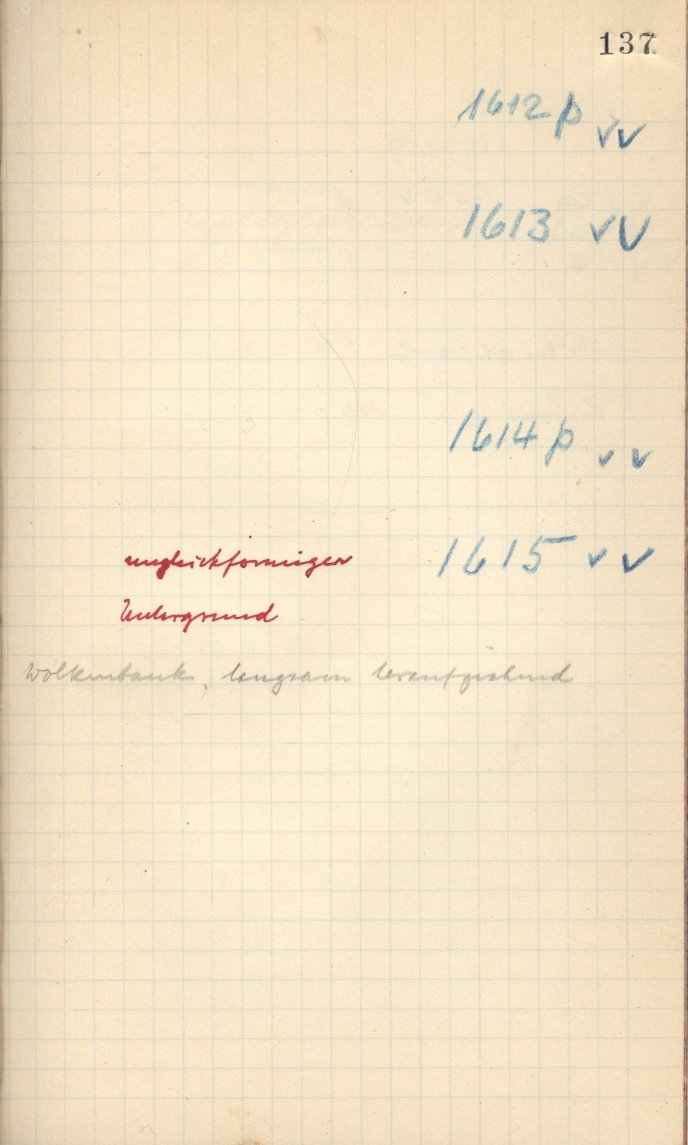 137
1612 p vv
1613 vv
1614 p vv
ungleichförmiger 1615 vv
Untergrund
Wolkenbank, langsam heraufziehend